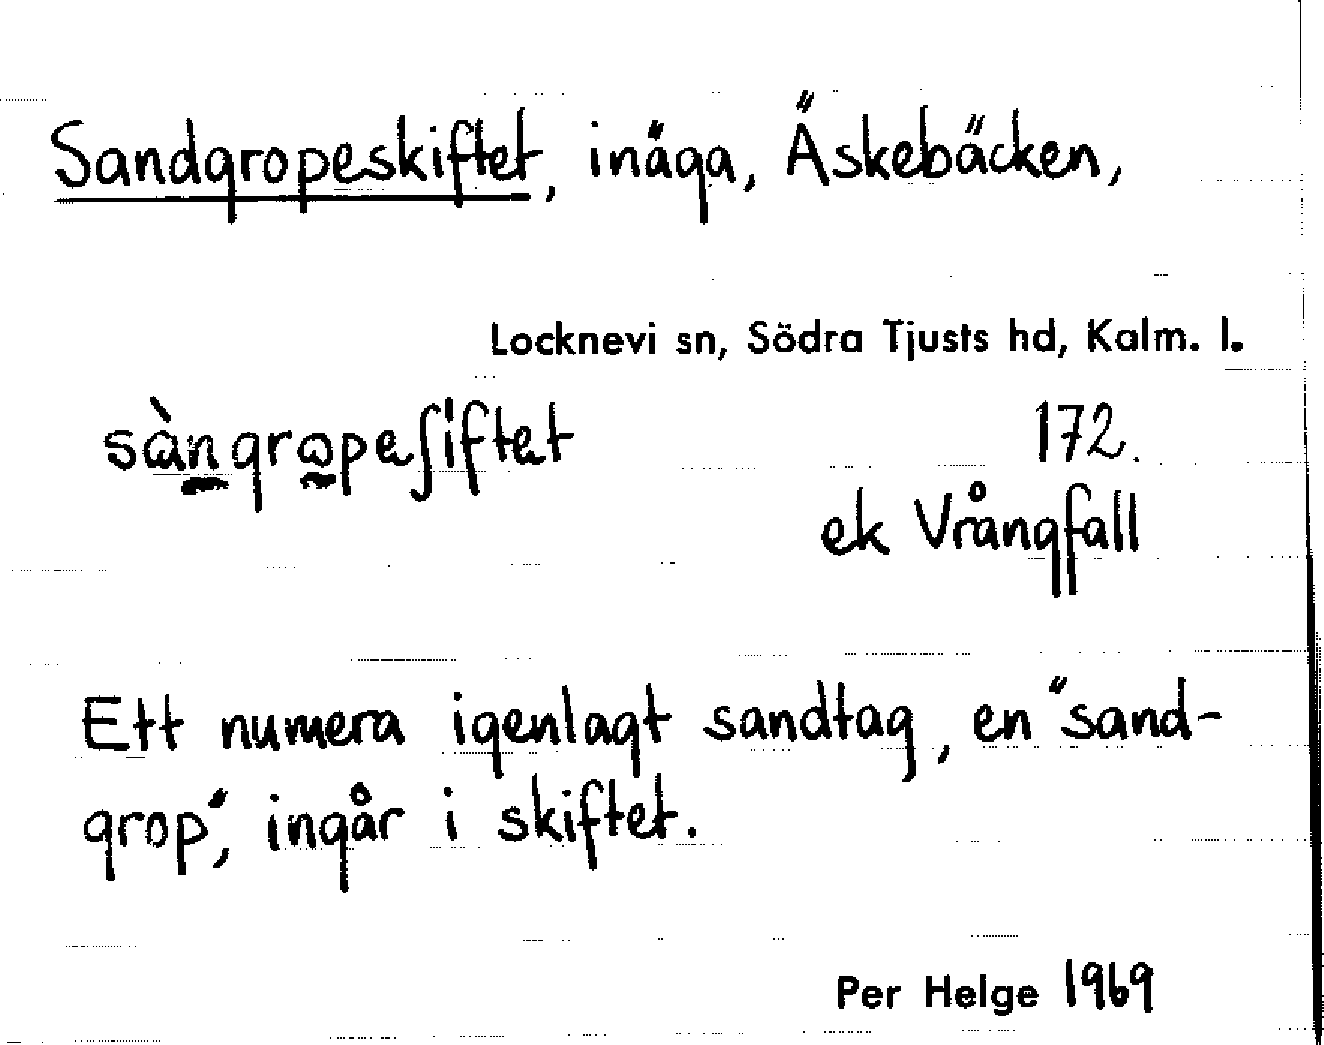 Sandgropeskiftet, inäga, Äskebäcken,
Locknevi sn, Södra Tjusts hd, Kalm. l.
sàngropeʃiftet 172.
ek Vrångfall
Ett numera igenlagt sandtag, en "sand-
grop", ingår i skiftet.
Per Helge 1969